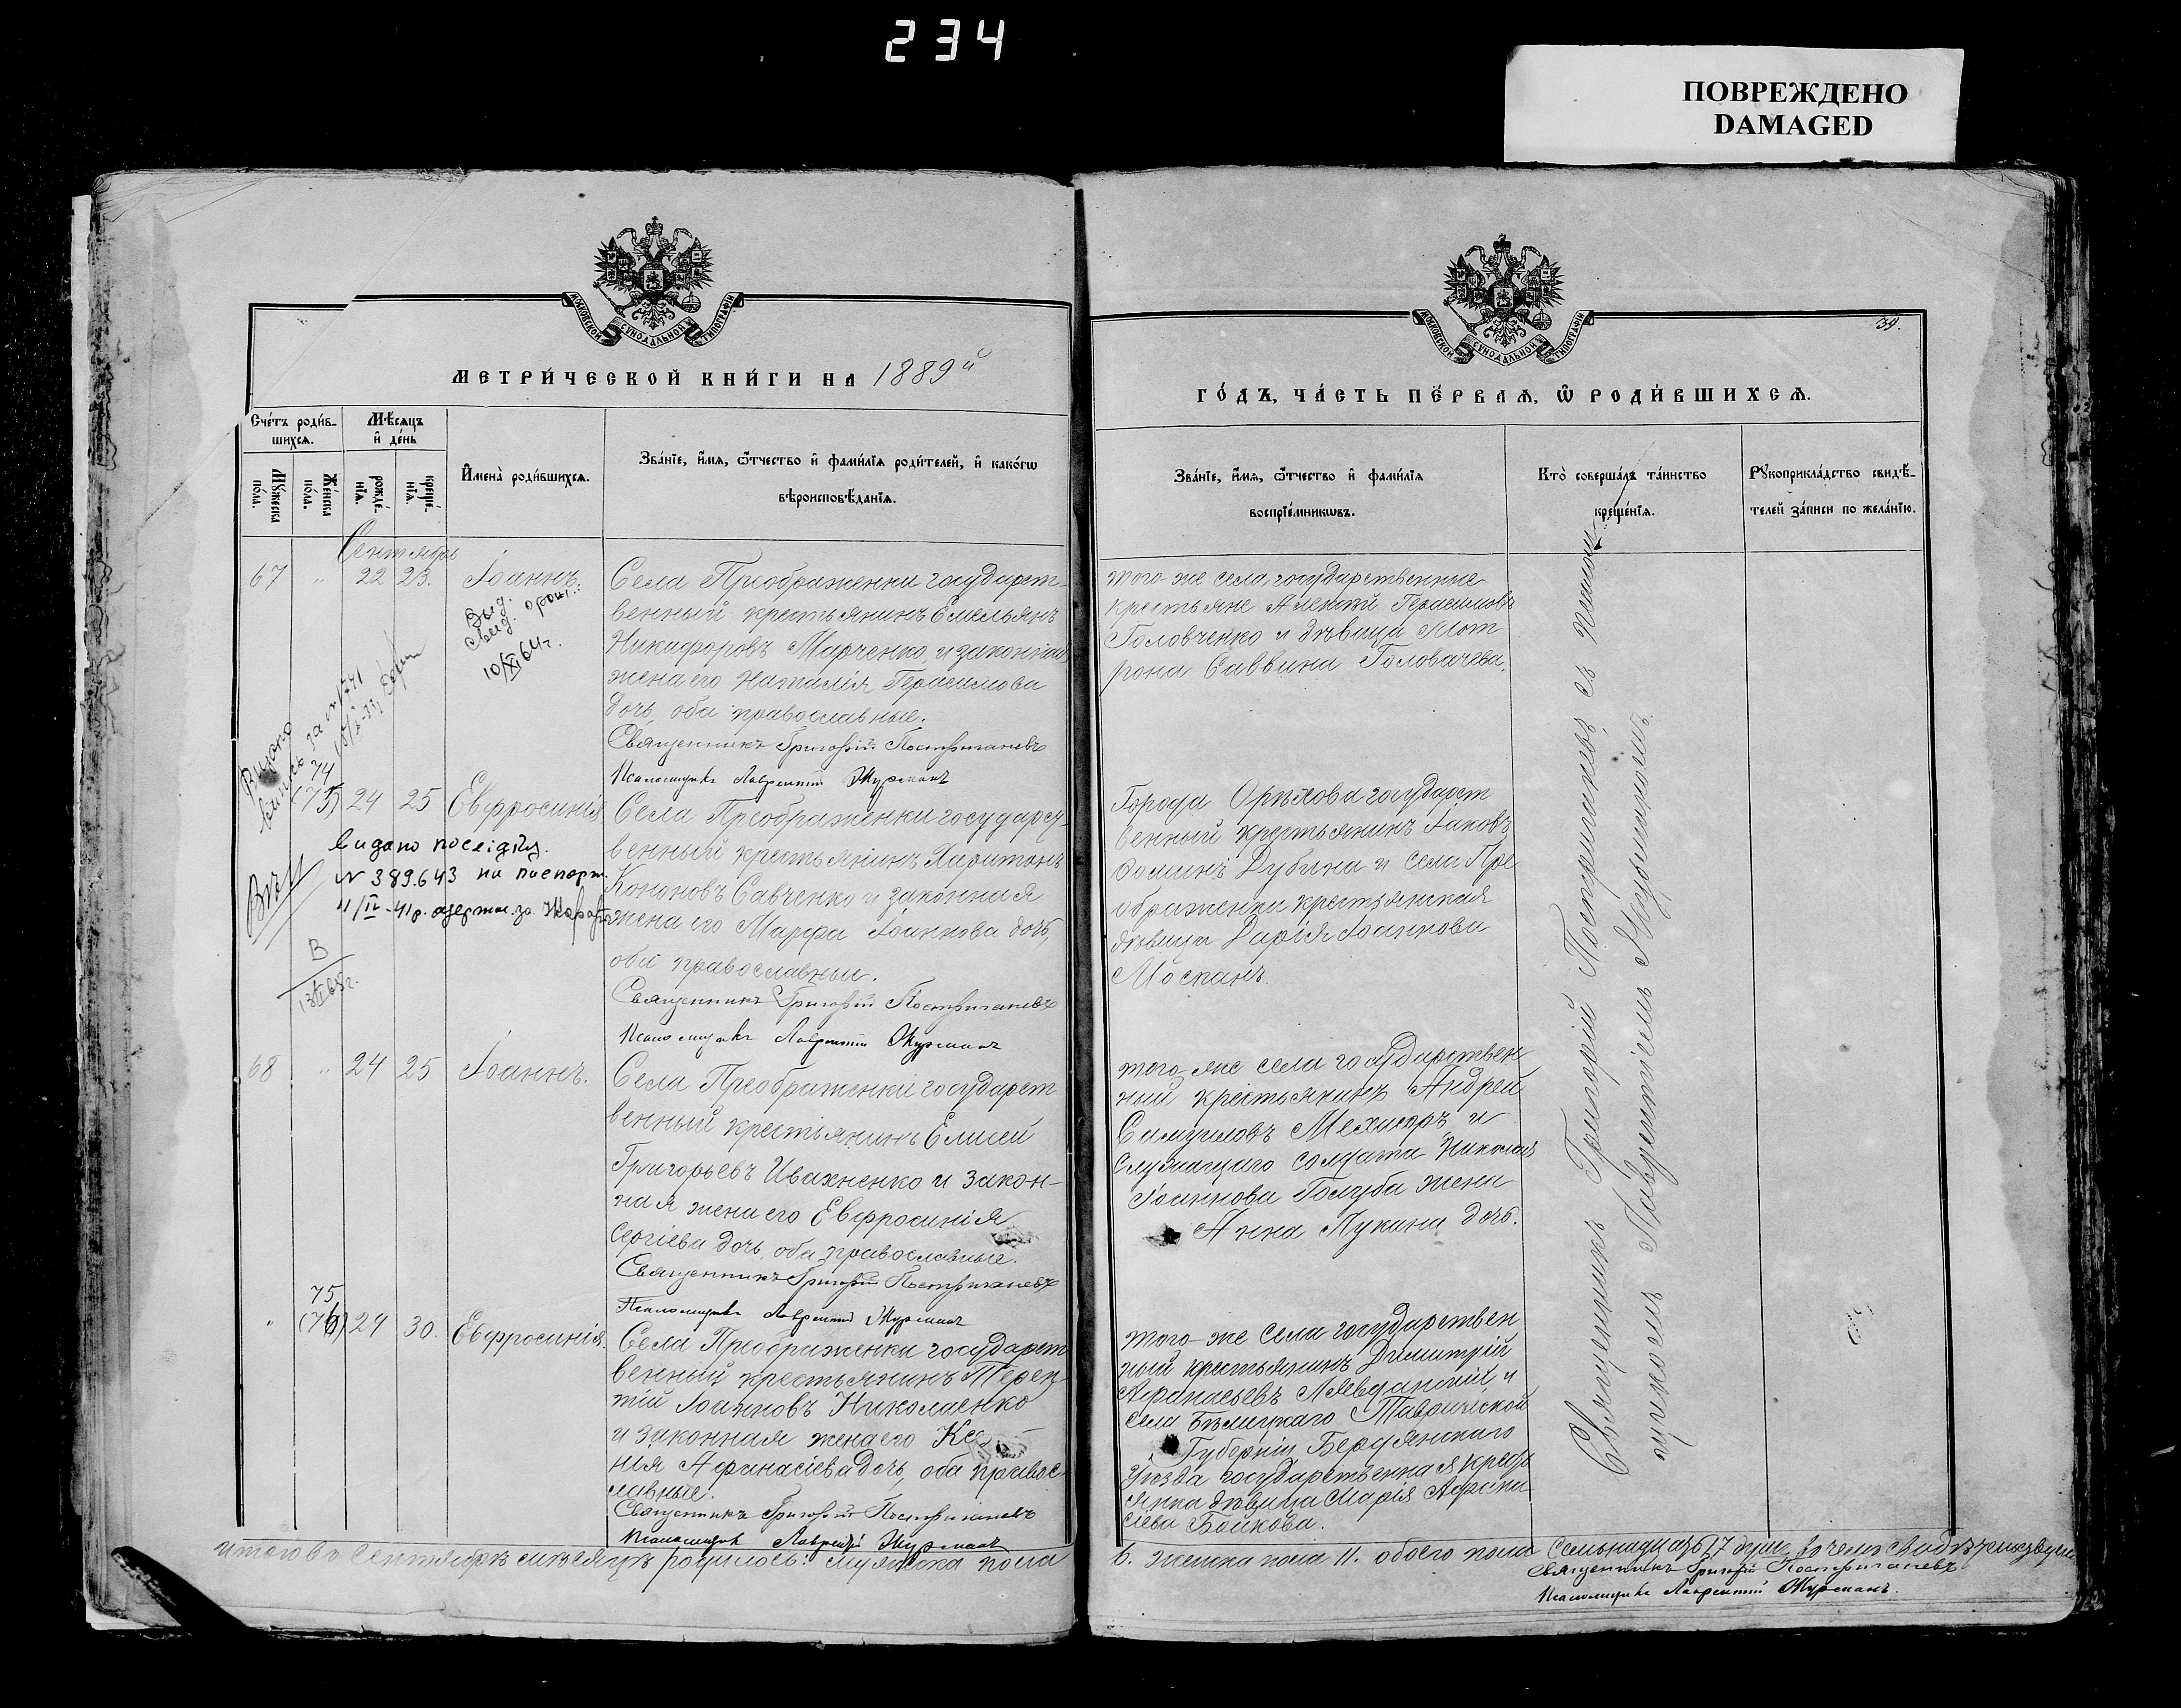 234
ПОВРЕЖДЕНО
DAMAGED
МОСКОВСКОЙ СѴНОДАЛЬНОЙ ТИПОГРАФІИ
МЕТРИ́ЧЕСКОЙ КНИ́ГИ НА 1889й
Сче́тъ роди́в-
шихсѧ.
Мѣ́сѧцъ
и҆ де́нь
Мꙋ́жеска
по́ла.
Же́нска
по́ла.
рожде́-
нїѧ.
креще́-
нїѧ.
И҆мена̀ роди́вшихсѧ.
Зва́нїе, и҆́мѧ, ѻ҆́тчество и҆ фами́лїѧ роди́телей, и҆ како́гѡ
вѣроисповѣ́данїѧ.
Сентябрь
67 " 22 23. Іоаннъ.
Выд.
свид. о рожд.
10/XI 64 г.
Села Преображенки государст
венный крестьянинъ Емельянъ
Никифоровъ Марченко и законная
жена его Наталія Герасимова
дочь, оба православные.
Священникъ Григорій Постригачевъ
Псаломщикъ Лаврентій Журманъ
Видано
74
(75) 24 25 Евфросинія
Села Преображенки государст
венный крестьянинъ Харитонъ
Кононовъ Савченко и законная
жена его Марфа Іоаннова дочь,
оба православныи.
Священникъ Григорій Постригачевъ
Псаломщикъ Лаврентій Журманъ
Видано посвідку.
№ 389.643 на паспорт.
В
68 " 24 25 Іоаннъ.
Села Преображенки государст
венный крестьянинъ Елисей
Григорьевъ Ивахненко и закон-
ная жена его Евфросинія
Сергіева дочь, оба православные.
Священникъ Григорій Постригачевъ
Псаломщикъ Лаврентій Журманъ
75
" (76) 29 30. Евфросинія.
Села Преображенки государст
венный крестьянинъ Терен
тій Іоанновъ Николаенко
и законная жена его Ксе
нія Афанасіева дочь, оба правос
лавные.
Священникъ Григорій Постригачевъ
Псаломщикъ Лаврентій Журманъ
Итого въ Сентябрѣ мѣсяцѣ родилось: мужеска пола
МОСКОВСКОЙ СѴНОДАЛЬНОЙ ТИПОГРАФІИ
39.
ГО́ДЪ, ЧА́СТЬ ПЕ́РВАѦ, Ѡ҆ РОДИ́ВШИХСѦ.
Зва́нїе, и҆́мѧ, ѻ҆́тчество и҆ фами́лїѧ
воспрїе́мникѡвъ.
Кто̀ соверша́лъ та́инство
креще́нїѧ.
Рꙋкоприкла́дство свидѣ́-
телей за́писи по жела́нїю.
того же села государственные
крестьяне Алексій Герасимовъ
Головченко и дѣвица Мот
рона Саввина Головачева.
Города Орѣхова государст
венный крестьянинъ Іаковъ
Фоминъ Дубина и села Пре
ображенки крестьянская
дѣвица Дарія Іоаннова
Моспанъ.
того же села государствен
ный крестьянинъ Андрей
Самуиловъ Мехиоръ и
служащаго солдата Николая
Іоаннова Голуба жена
Анна Лукина дочь.
того же села государствен
ный крестьянинъ Димитрій
Афанасьевъ и
села Бѣлицкаго Таврической
Губерніи Бердянскаго
уѣзда государственная кресть
янка дѣвица Марія Афана
сіева Бойкова.
Священникъ Григорій Постригачевъ съ псалом
щикомъ Лаврентіемъ Журманомъ.
6. женска пола 11. обоего пола семьнадцать 17 душъ, въ чемъ свидѣтельствуемъ
Священникъ Григорій Постригачевъ
Псаломщикъ Лаврентій Журманъ.